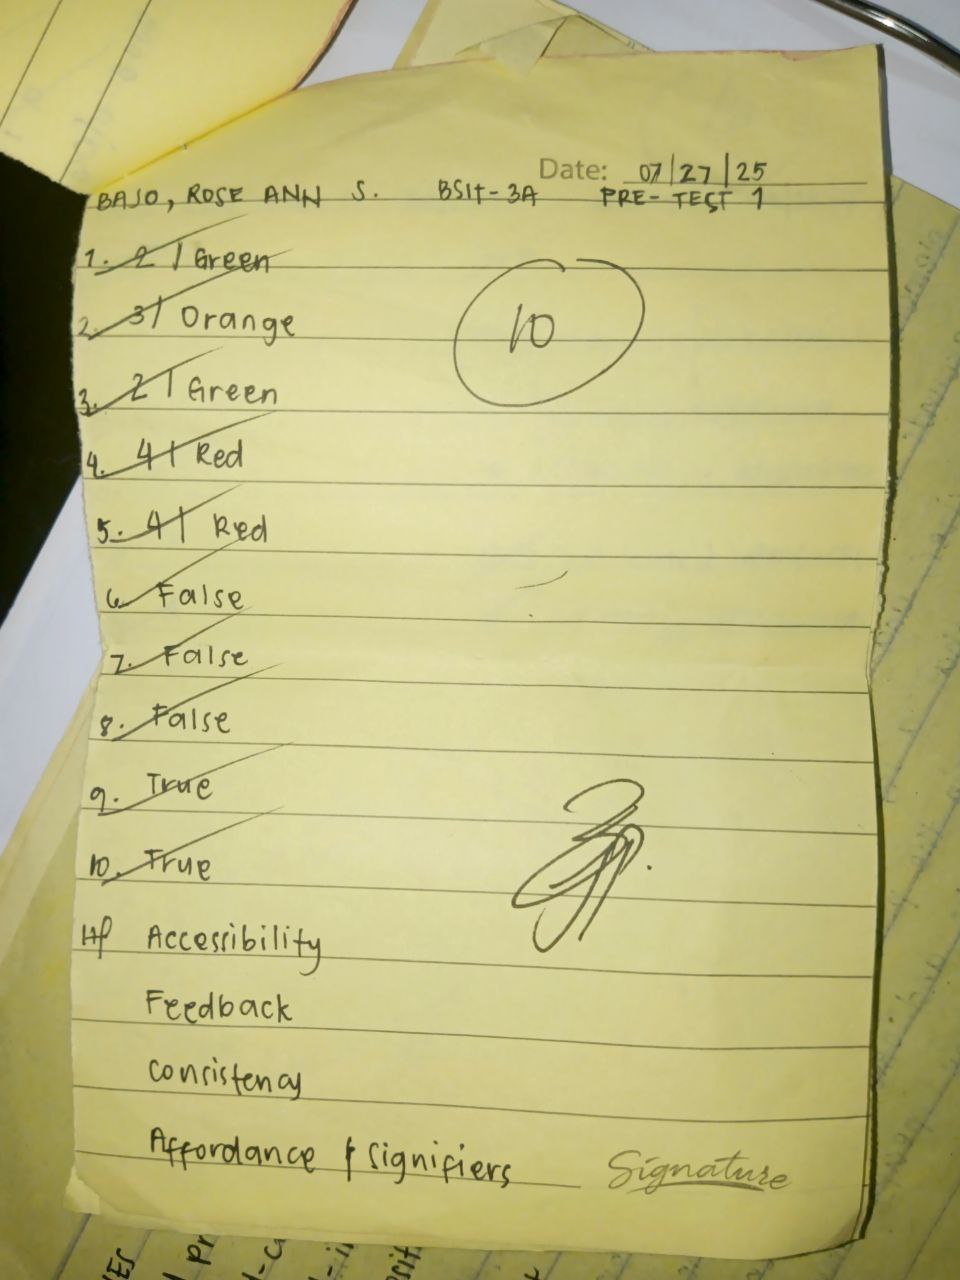 Date: 07/27/25
BAJO, ROSE ANN S. BSIT-3A PRE-TEST 1
1. 2 / Green
2. 3/ Orange
10
3. 2 / Green
4. 4 / Red
5. 4 / Red
6. False
7. False
8. False
9. True
10. True
Accessibility
Feedback
Consistency
Affordance & Signifiers
Signature